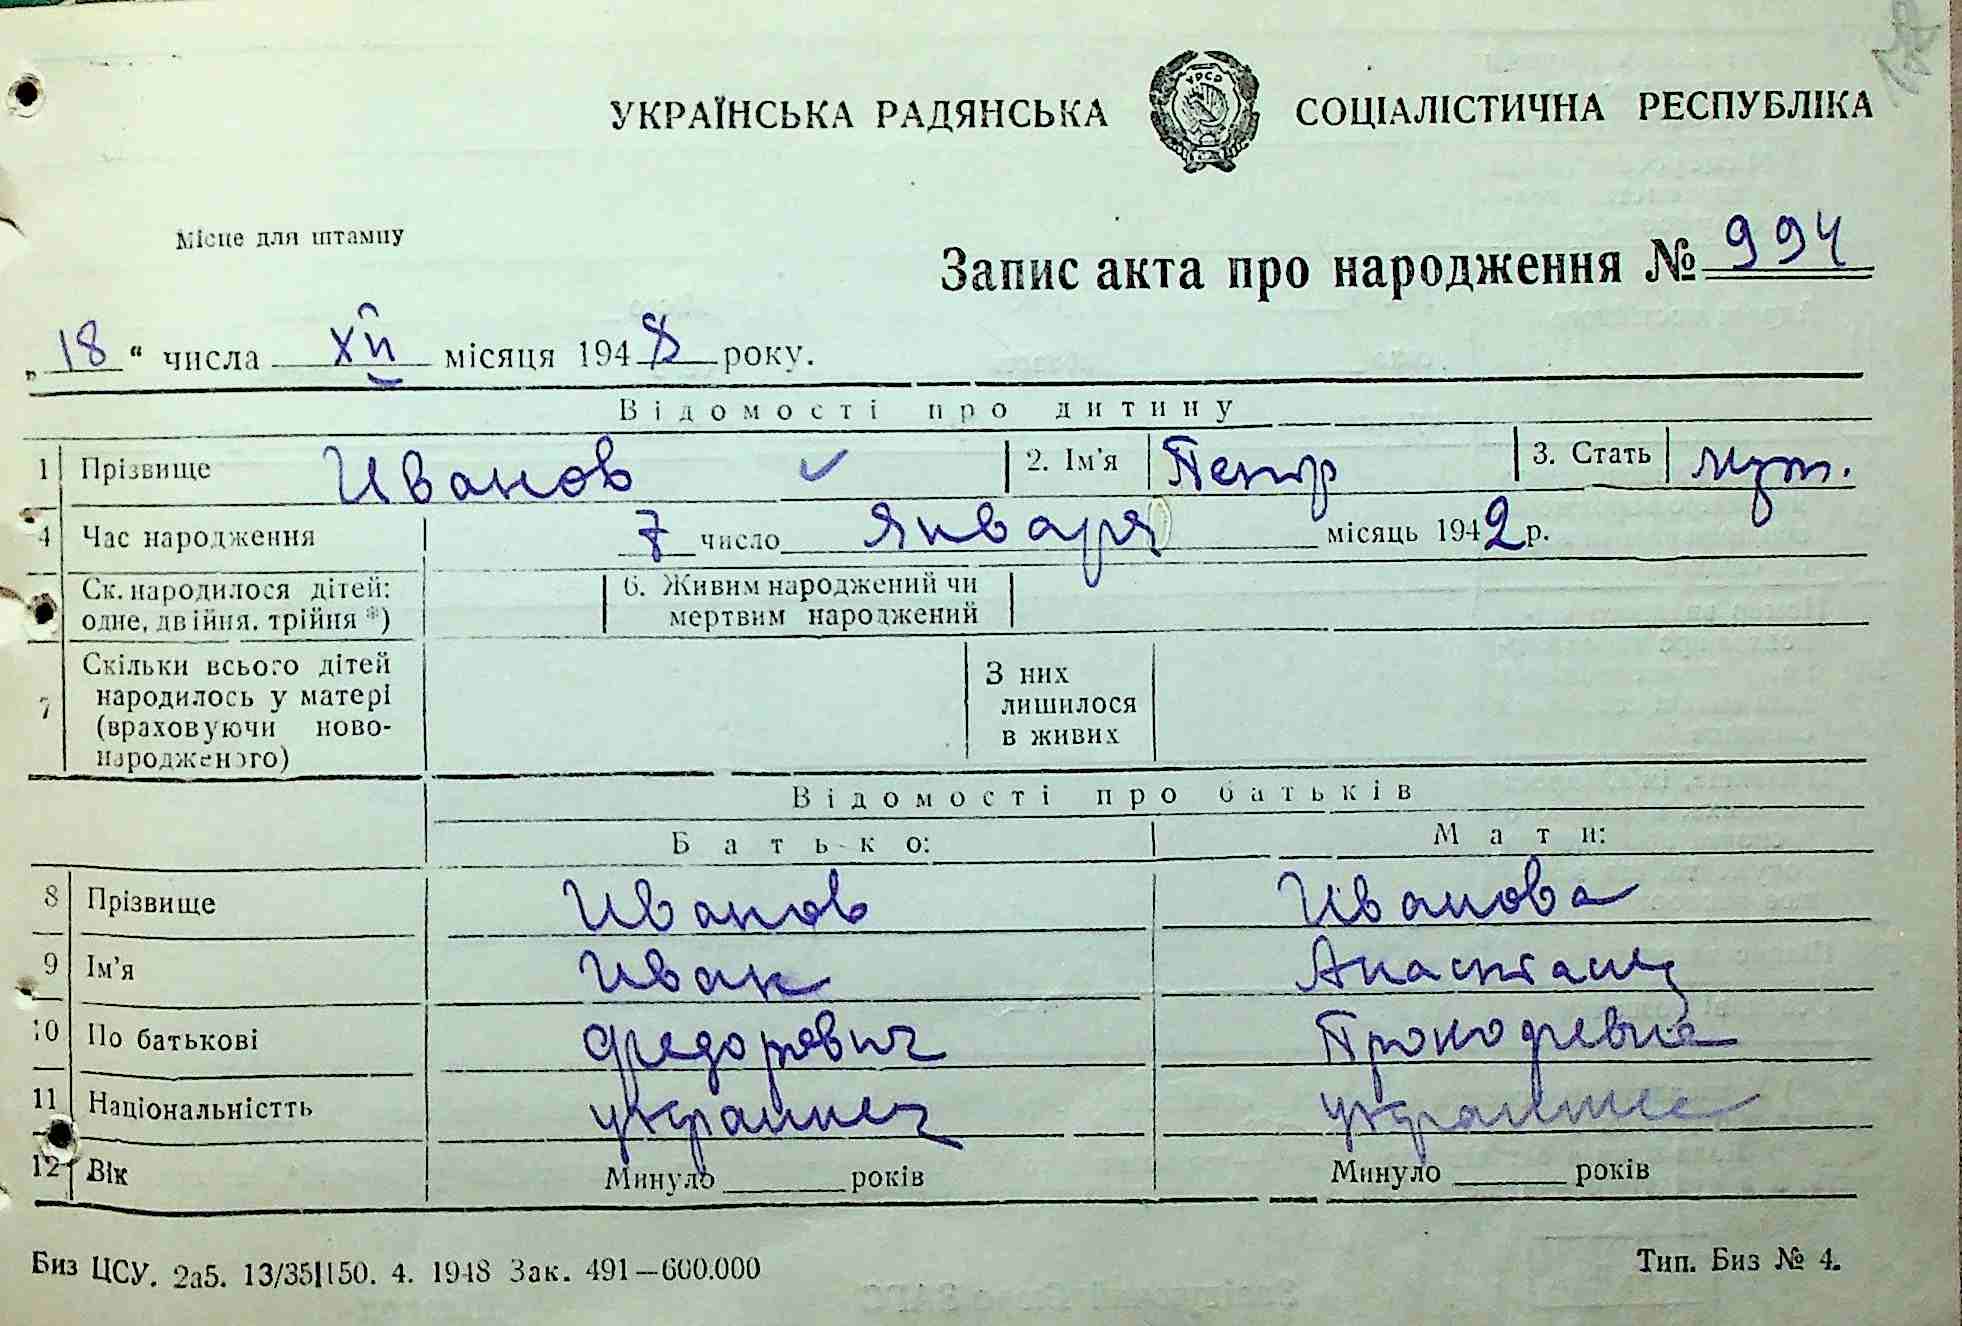 УКРАЇНСЬКА РАДЯНСЬКА СОЦІАЛІСТИЧНА РЕСПУБЛІКА
УРСР
Місце для штампу
Запис акта про народження № 994
„18“ числа XII місяця 1948 року.
Відомості про дитину
1 Прізвище Иванов 2. Ім'я Петр 3. Стать муж.
4 Час народження 7 число января місяць 1942 р.
Ск. народилося дітей: 6. Живим народжений чи
одне, двійня, трійня *) мертвим народжений
7 Скільки всього дітей З них
народилось у матері лишилося
(враховуючи ново- в живих
народженого)
Відомості про батьків
Батько: Мати:
8 Прізвище Иванов Иванова
9 Ім'я Иван Анастасия
10 По батькові Федорович Прокофевна
11 Національністть украинец украинка
12 Вік Минуло ______ років Минуло ______ років
Биз ЦСУ. 2а5. 13/35|150. 4. 1948 Зак. 491—600.000 Тип. Биз № 4.